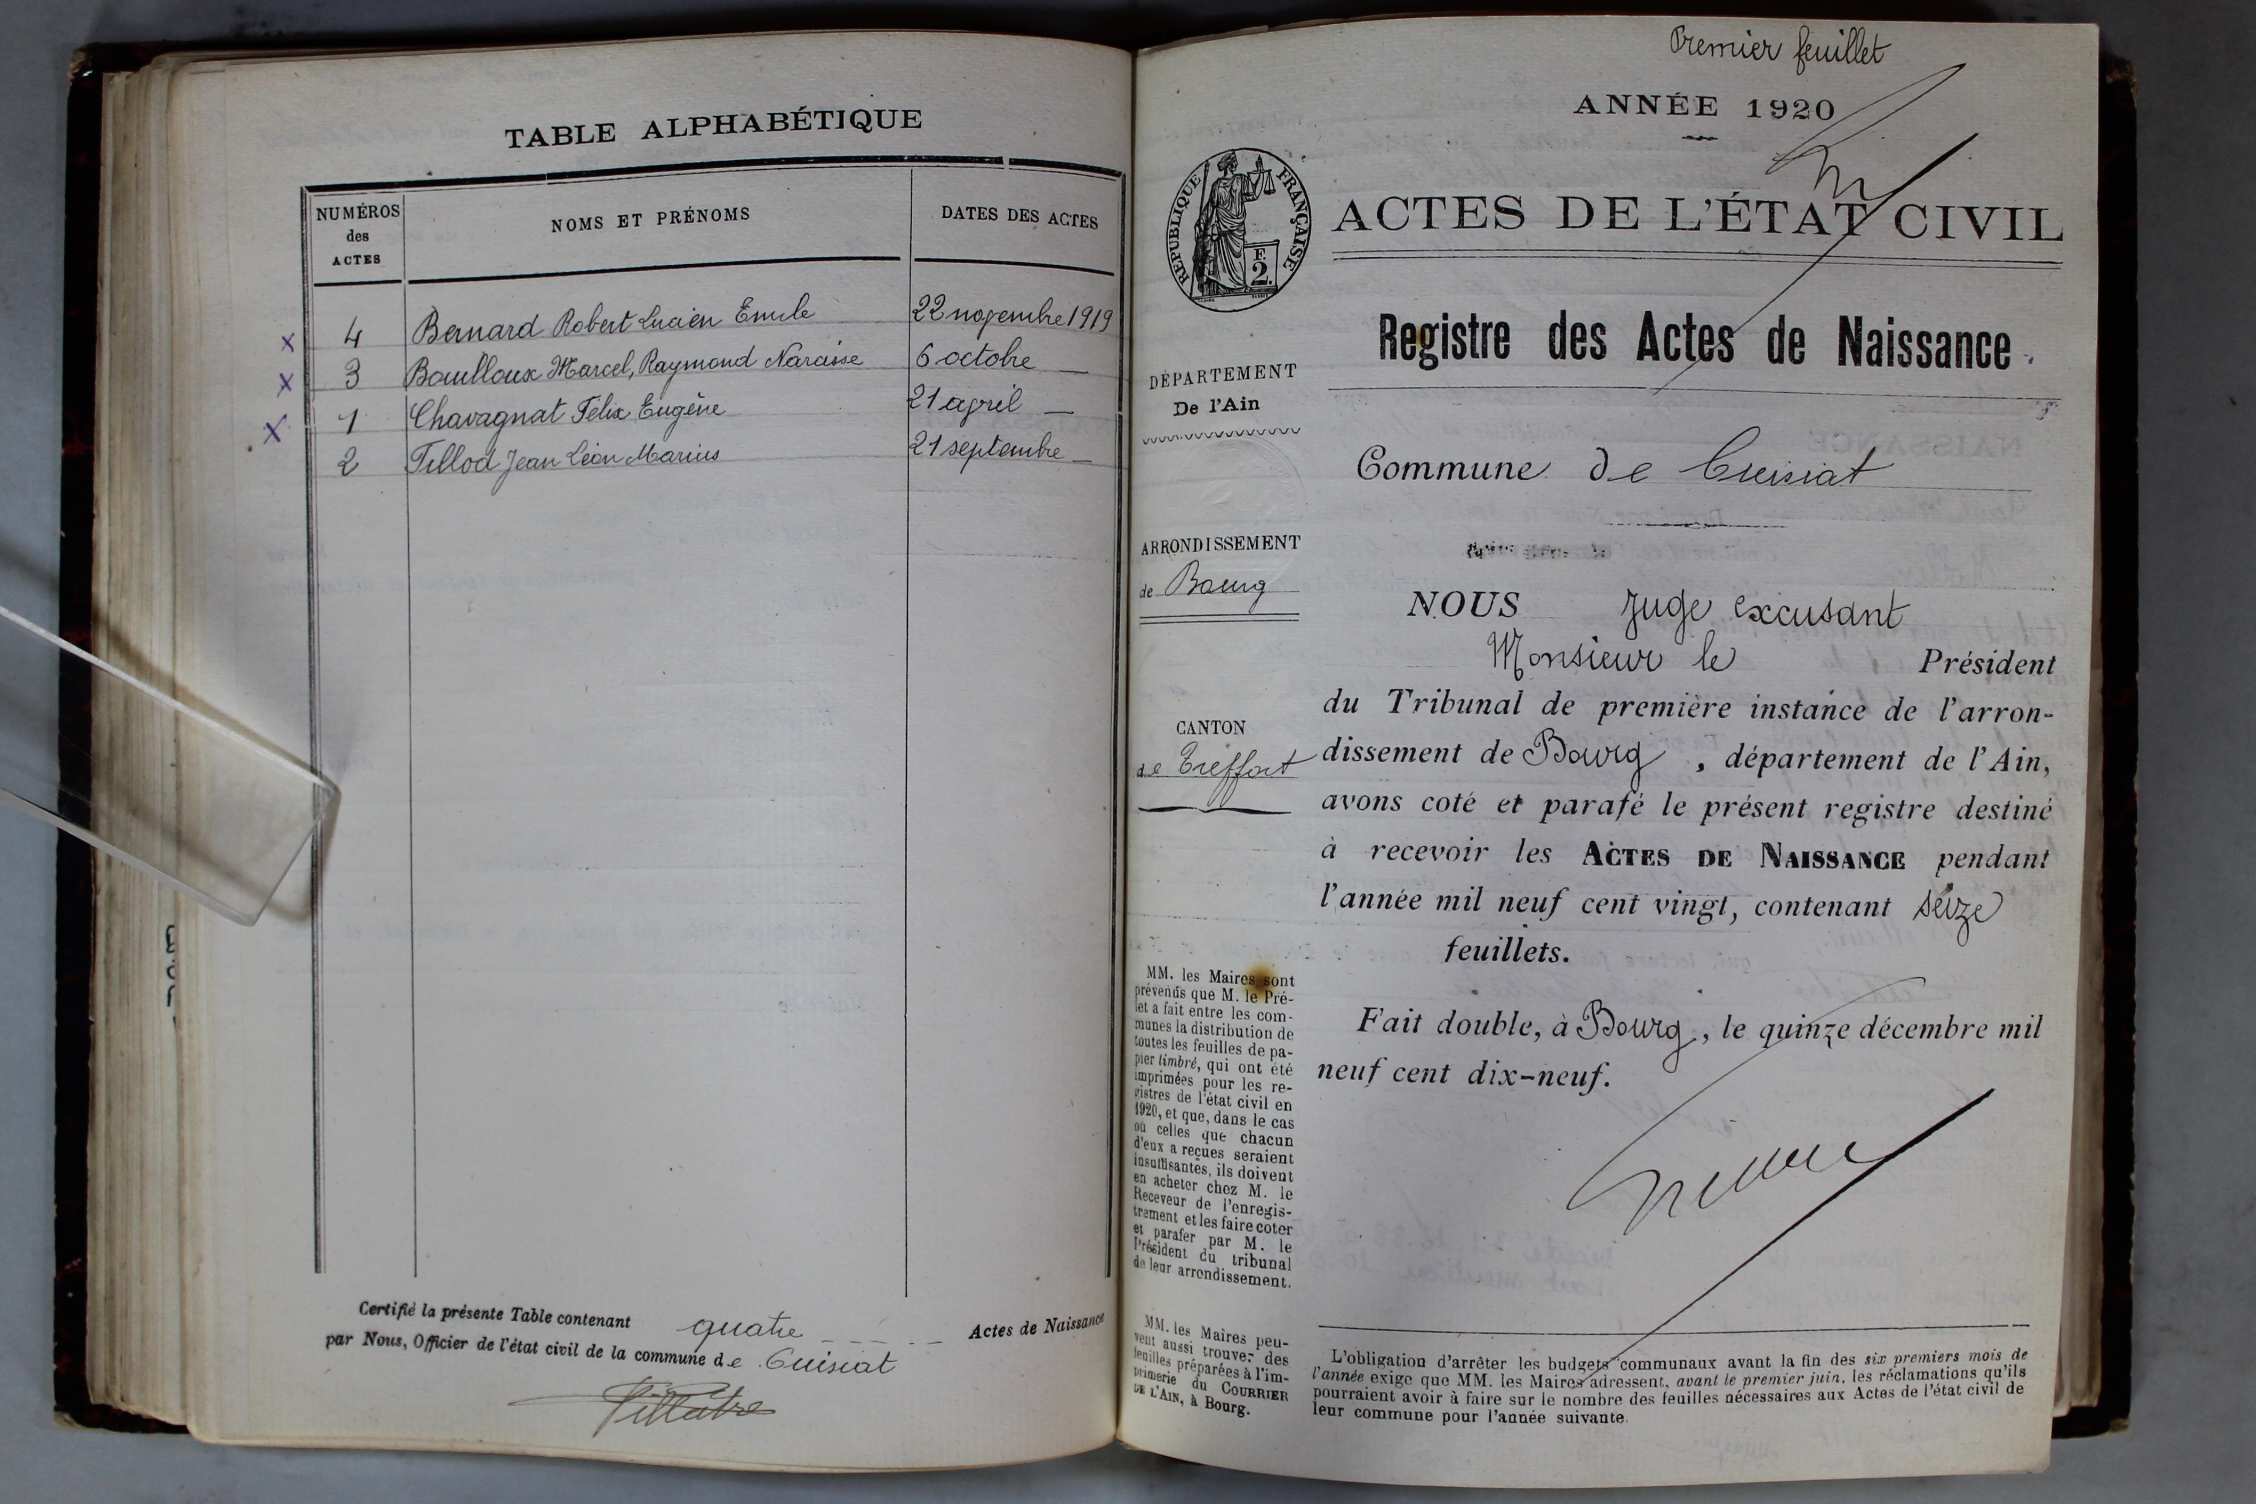 TABLE ALPHABÉTIQUE
NUMÉROS
des
ACTES
NOMS ET PRÉNOMS
DATES DES ACTES
x 4 Bernard Robert Lucien Emile 22 novembre 1919
x 3 Bouilloux Marcel, Raymond Narcisse 6 octobre —
x 1 Chavagnat Félix Eugène 21 avril —
2 Tillod Jean Léon Marius 21 septembre —
Certifié la présente Table contenant quatre Actes de Naissance
par Nous, Officier de l'état civil de la commune de Cuisiat
Premier feuillet
ANNÉE 1920
RÉPUBLIQUE FRANÇAISE
F.
2
ACTES DE L'ÉTAT CIVIL
Registre des Actes de Naissance
DÉPARTEMENT
De l'Ain
Commune de Cuisiat
ARRONDISSEMENT
de Bourg
NOUS Juge excusant
Monsieur le Président
du Tribunal de première instance de l'arron-
dissement de Bourg, département de l'Ain,
avons coté et parafé le présent registre destiné
à recevoir les ACTES DE NAISSANCE pendant
l'année mil neuf cent vingt, contenant seize
feuillets.
CANTON
de Treffort
Fait double, à Bourg, le quinze décembre mil
neuf cent dix-neuf.
MM. les Maires sont
prévenus que M. le Pré-
fet a fait entre les com-
munes la distribution de
toutes les feuilles de pa-
pier timbré, qui ont été
imprimées pour les re-
gistres de l'état civil en
1920, et que, dans le cas
où celles que chacun
d'eux a reçues seraient
insuffisantes, ils doivent
en acheter chez M. le
Receveur de l'enregis-
trement et les faire coter
et parafer par M. le
Président du tribunal
de leur arrondissement.
MM. les Maires peu-
vent aussi trouver des
feuilles préparées à l'im-
primerie du COURRIER
DE L'AIN, à Bourg.
L'obligation d'arrêter les budgets communaux avant la fin des six premiers mois de
l'année exige que MM. les Maires adressent, avant le premier juin, les réclamations qu'ils
pourraient avoir à faire sur le nombre des feuilles nécessaires aux Actes de l'état civil de
leur commune pour l'année suivante.